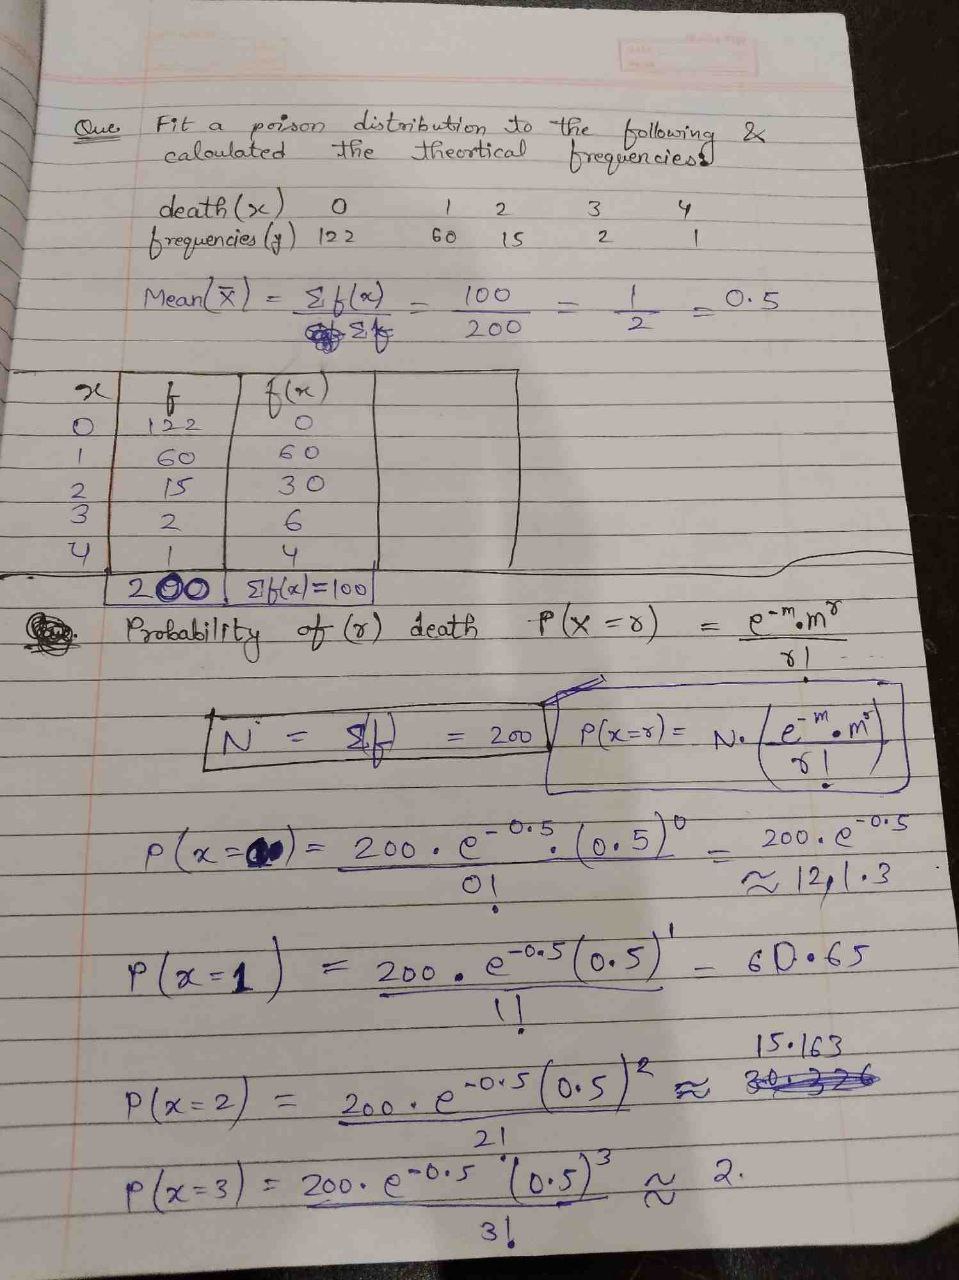 Que. Fit a poison distribution to the following &
calculated the theortical frequencies.
death (x) 0 1 2 3 4
frequencies (y) 122 60 15 2 1
Mean(x̄) = Σf(x) / Σf = 100 / 200 = 1 / 2 = 0.5
x f f(x)
0 122 0
1 60 60
2 15 30
3 2 6
4 1 4
200 Σf(x)=100
Probability of (r) death P(X=r) = e^-m.m^r / r!
N = Σf = 200 P(x=r) = N. (e^-m.m^r / r!)
P(x=0) = 200.e^-0.5.(0.5)^0 / 0! = 200.e^-0.5
≈ 121.3
P(x=1) = 200.e^-0.5(0.5)^1 / 1! = 60.65
P(x=2) = 200.e^-0.5(0.5)^2 / 2! ≈ 15.163
P(x=3) = 200.e^-0.5(0.5)^3 / 3! ≈ 2.